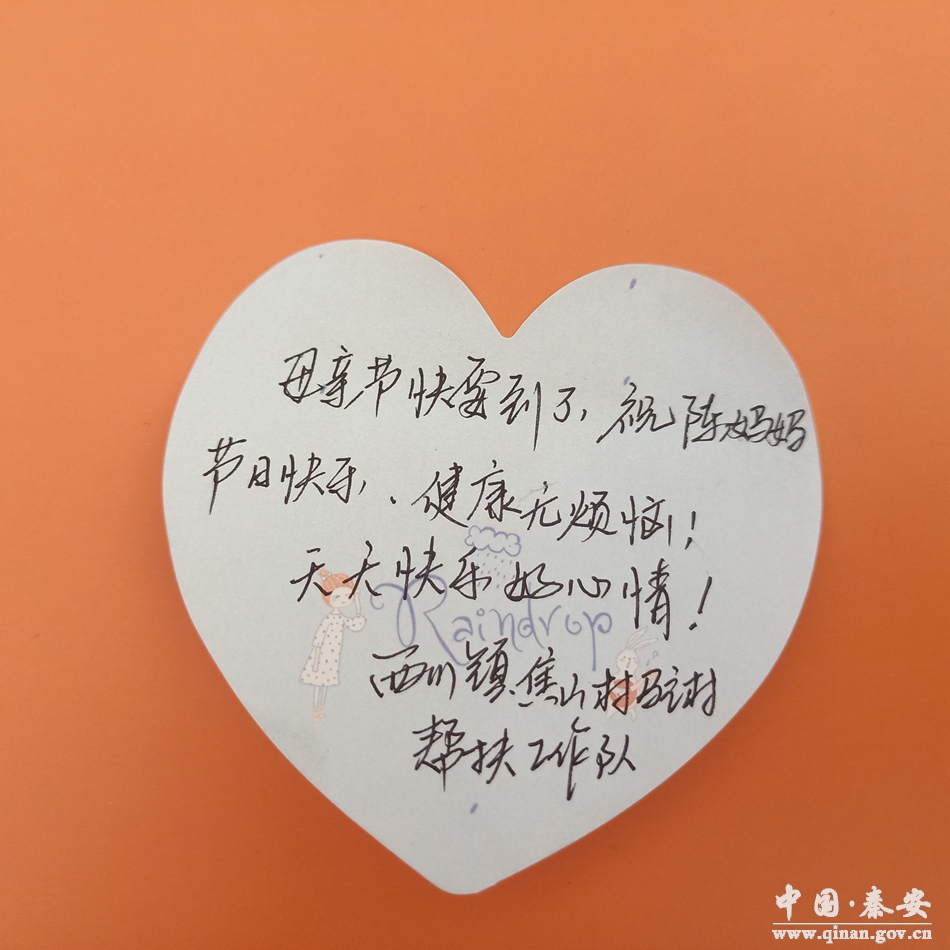 母亲节快要到了、祝陈妈妈
节日快乐、健康无烦恼！
天天快乐好心情！
Raindrop
西川镇焦山村驻村
帮扶工作队
中国·秦安
www.qinan.gov.cn